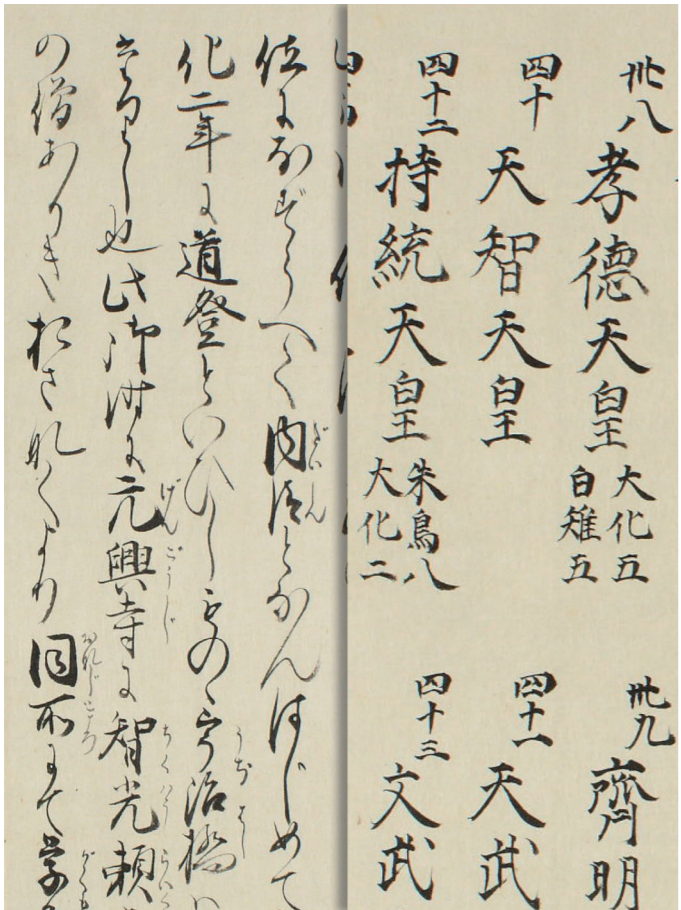 卅八 孝德天皇 大化五 白雉五 卅九 齊明
四十 天智天皇 四十一 天武
四十二 持統天皇 朱鳥八 大化二 四十三 文武
位になぞらへて内臣となんはじめて
化二年に道登といひしものゝ宇治橋
し也此御時に元興寺に智光頼
の僧ありきおさなくより同所にて学